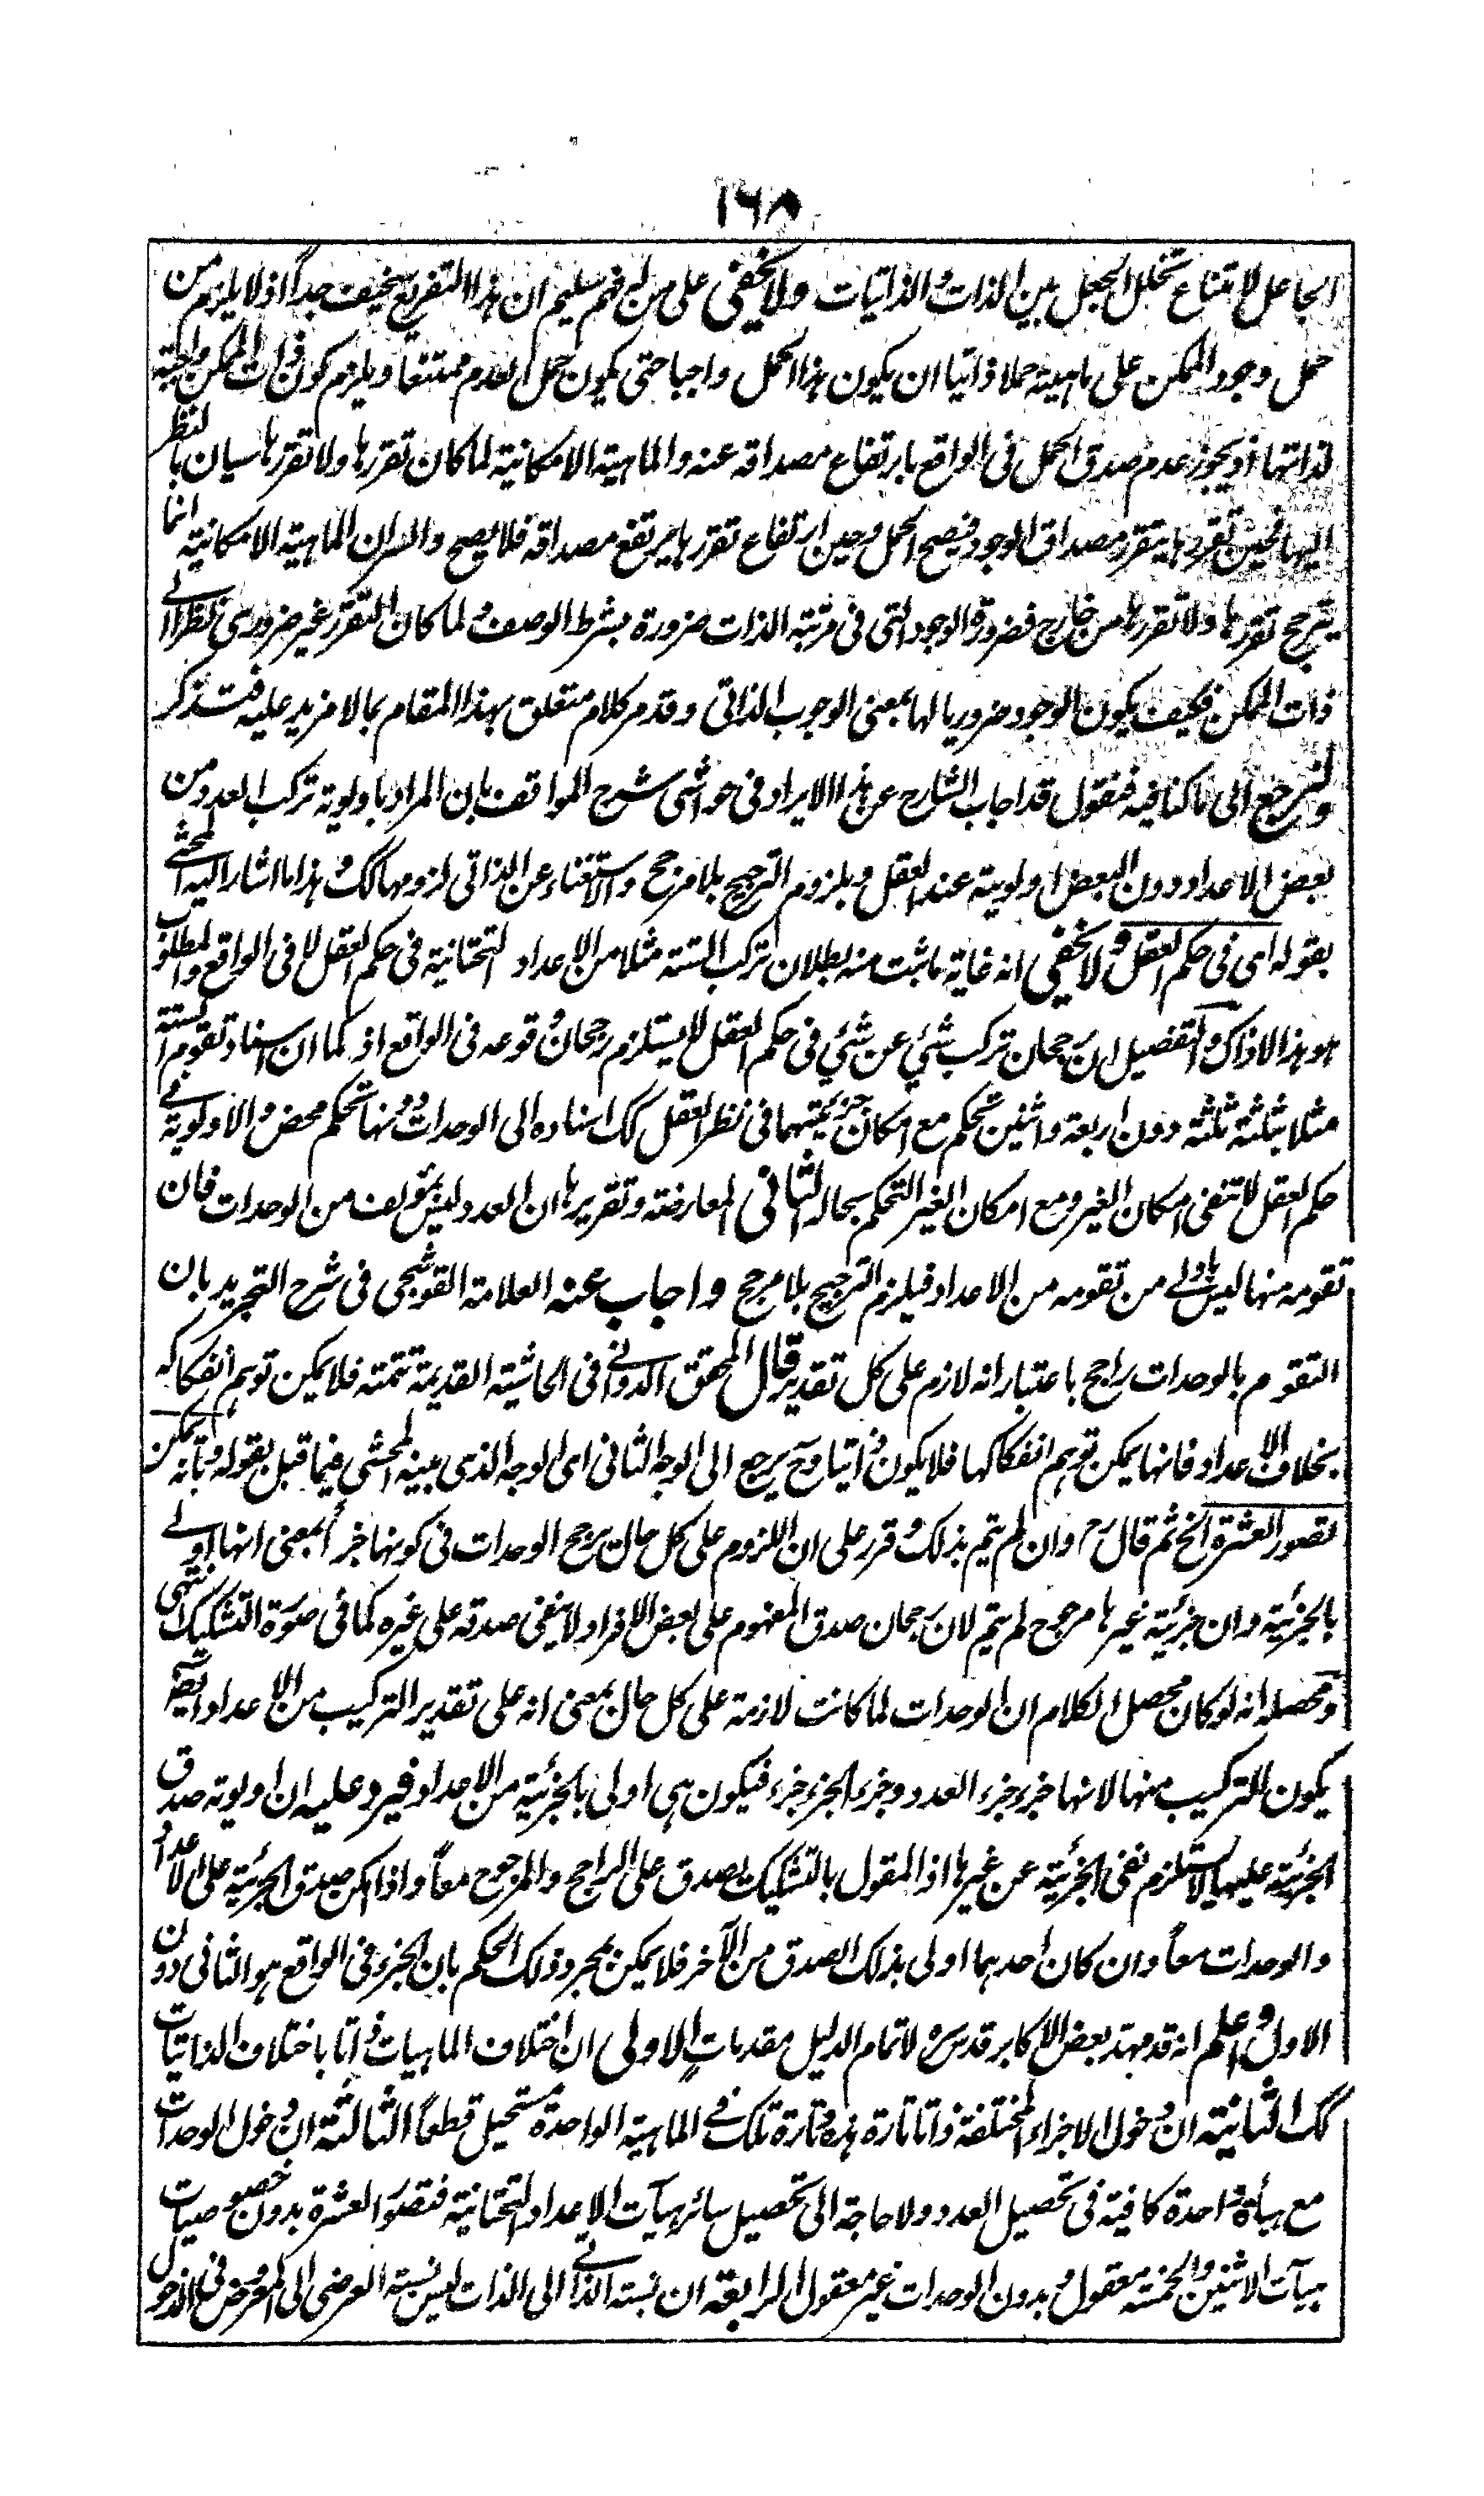 ١٦٨
الجاعل لامتناع تخلل الجعل بين الذات والذاتيات ولا يخفى على من له فهم سليم ان هذا التفريع سخيف جدا اذ لا يلزم من
حمل وجود الممكن على ماهيته حملا ذاتيا ان يكون هذا الحمل واجبا حتى يكون حمل العدم ممتنعا ويلزم كون ذات الممكن واجبة
لذاتها اذ يجوز عدم صدق الحمل فى الواقع بارتفاع مصداقه عنه والماهية الامكانية لما كان تقررها ولا تقررها سيان بالنظر
اليها فحين تقررها يتقرر مصداق الوجود فيصح الحمل وحين ارتفاع تقررها يرتفع مصداقه فلا يصح والسر ان الماهية الامكانية انما
يترجح تقررها ولا تقررها من خارج فضرورة الوجود التى فى مرتبة الذات ضرورة بشرط الوصف ولما كان التقرر غير ضرورى نظرا الى
ذات الممكن فكيف يكون الوجود ضروريا لها بمعنى الوجوب الذاتى وقد مر كلام متعلق بهذا المقام بما لا مزيد عليه فتذكر
ولنرجع الى ما كنا فيه فنقول قد اجاب الشارح عن هذا الايراد فى حواشى شرح المواقف بان المراد باولوية تركب العدد من
بعض الاعداد دون البعض اولوية عند العقل وبلزوم الترجيح بلا مرجح والاستغناء عن الذاتى لزومهما كك وهذا ما اشار اليه المحشى
بقوله اى فى حكم العقل ولا يخفى انه غاية ما ثبت منه بطلان تركب الستة مثلا من الاعداد التحتانية فى حكم العقل لا فى الواقع والمطلوب
هو هذا لا ذاك والتفصيل ان رجحان تركب شئ عن شئ فى حكم العقل لا يستلزم رجحان وقوعه فى الواقع اذ كما ان اسناد تقوم الستة
مثلا بثلثة ثلثة دون اربعة واثنين تحكم مع امكان جزئيتهما فى نظر العقل كك اسناده الى الوحدات دونها تحكم محض والاولوية فى
حكم العقل لا تنفى امكان الغير ومع امكان الغير التحكم بحاله الثانى المعارضة وتقريرها ان العدد ليس بمؤلف من الوحدات فان
تقومه منها ليس باولى من تقومه من الاعداد فيلزم الترجيح بلا مرجح واجاب عنه العلامة القوشجى فى شرح التجريد بان
التقوم بالوحدات راجح باعتبار انه لازم على كل تقدير قال المحقق الدوانى فى الحاشية القديمة تتمته فلا يمكن توهم انفكاكه
بخلاف الاعداد فانها يمكن توهم انفكاكها فلا يكون ذاتيا وح يرجع الى الوجه الثانى اى الوجه الذى بينه المحشى فيما قبل بقوله وبانه يمكن
تصور العشرة الخ ثم قال رح وان لم يتم بذلك وقرر على ان اللزوم على كل حال يرجح الوحدات فى كونها جزأ بمعنى انها اولى
بالجزئية وان جزئية غيرها مرجوح لم يتم لان رجحان صدق المفهوم على بعض الافراد لا ينفى صدقه على غيره كما فى صورة التشكيك انتهى
ومحصله انه لو كان محصل الكلام ان الوحدات لما كانت لازمة على كل حال بمعنى انه على تقدير التركيب من الاعداد ايضا
يكون للتركيب منها لانها جزء جزء العدد وجزء الجزء جزء فيكون هى اولى بالجزئية من الاعداد فيرد عليه ان اولوية صدق
الجزئية عليها لا يستلزم نفى الجزئية عن غيرها اذ المقول بالتشكيك يصدق على الراجح والمرجوح معا واذا امكن صدق الجزئية على الاعداد
والوحدات معا وان كان احدهما اولى بذلك الصدق من الآخر فلا يمكن بمجرد ذلك الحكم بان الجزء فى الواقع هو الثانى دون
الاول واعلم انه قد مهد بعض الاكابر قدس سره لاتمام الدليل مقدمات الاولى ان اختلاف الماهيات ذاتا باختلاف الذاتيات
كك الثانية ان دخول الاجزاء المختلفة ذاتا تارة هذه وتارة تلك فى الماهية الواحدة مستحيل قطعا الثالثة ان دخول الوحدات
مع هيأة واحدة كافية فى تحصيل العدد ولا حاجة الى تحصيل سائر هيآت الاعداد التحتانية فتصور العشرة بدون خصوصيات
هيآت الاثنين والخمسة معقول وبدون الوحدات غير معقول الرابعة ان نسبة الذاتى الى الذات ليس نسبة العرضى الى المعروض فى الدخول